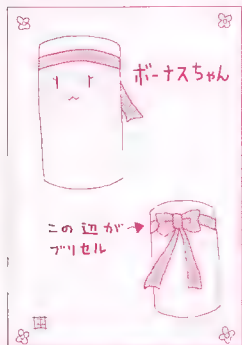 ボーナスちゃん
この辺が
プリセル